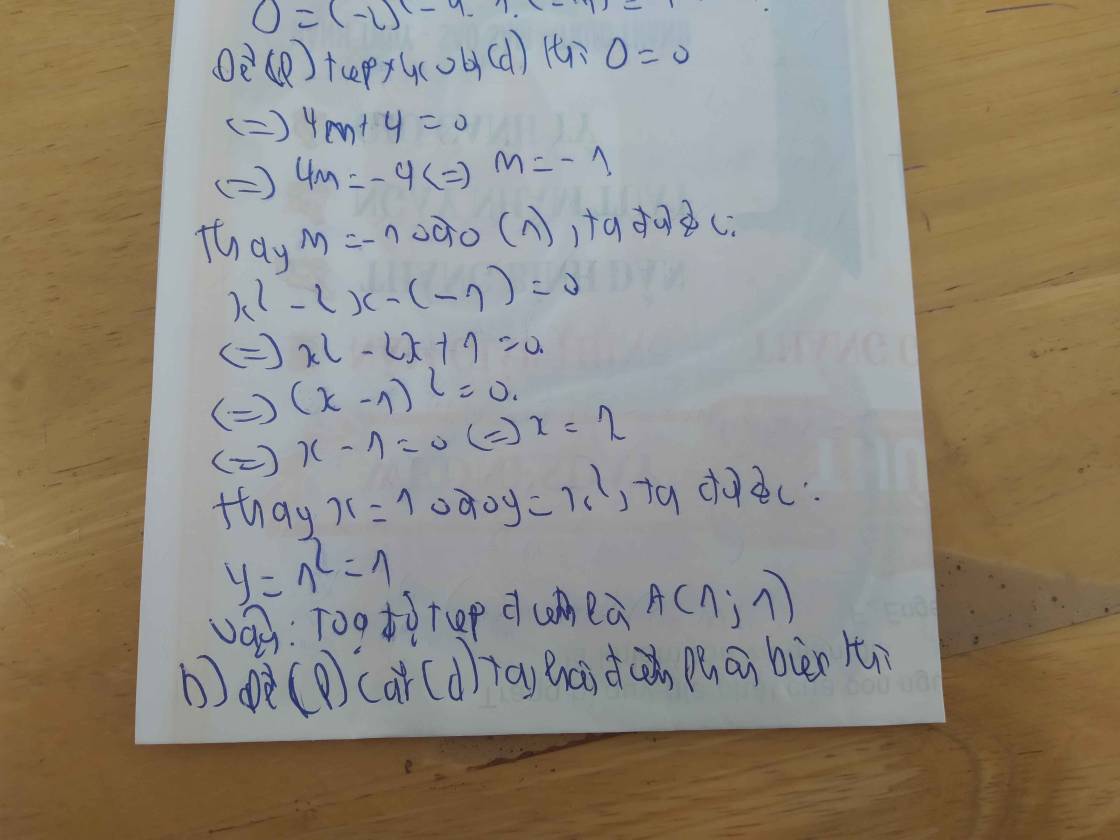 Δ = (-2)² - 4.1.(-m) =
Để (P) tiếp xúc với (d) thì Δ = 0
<=> 4m + 4 = 0
<=> 4m = -4 <=> m = -1
thay m = -1 vào (1), ta được:
x² - 2x - (-1) = 0
<=> x² - 2x + 1 = 0.
<=> (x - 1)² = 0.
<=> x - 1 = 0 <=> x = 1
thay x = 1 vào y = x², ta được:
y = 1² = 1
Vậy: Toạ độ tiếp điểm là A(1; 1)
b) Để (P) cắt (d) tại hai điểm phân biệt thì